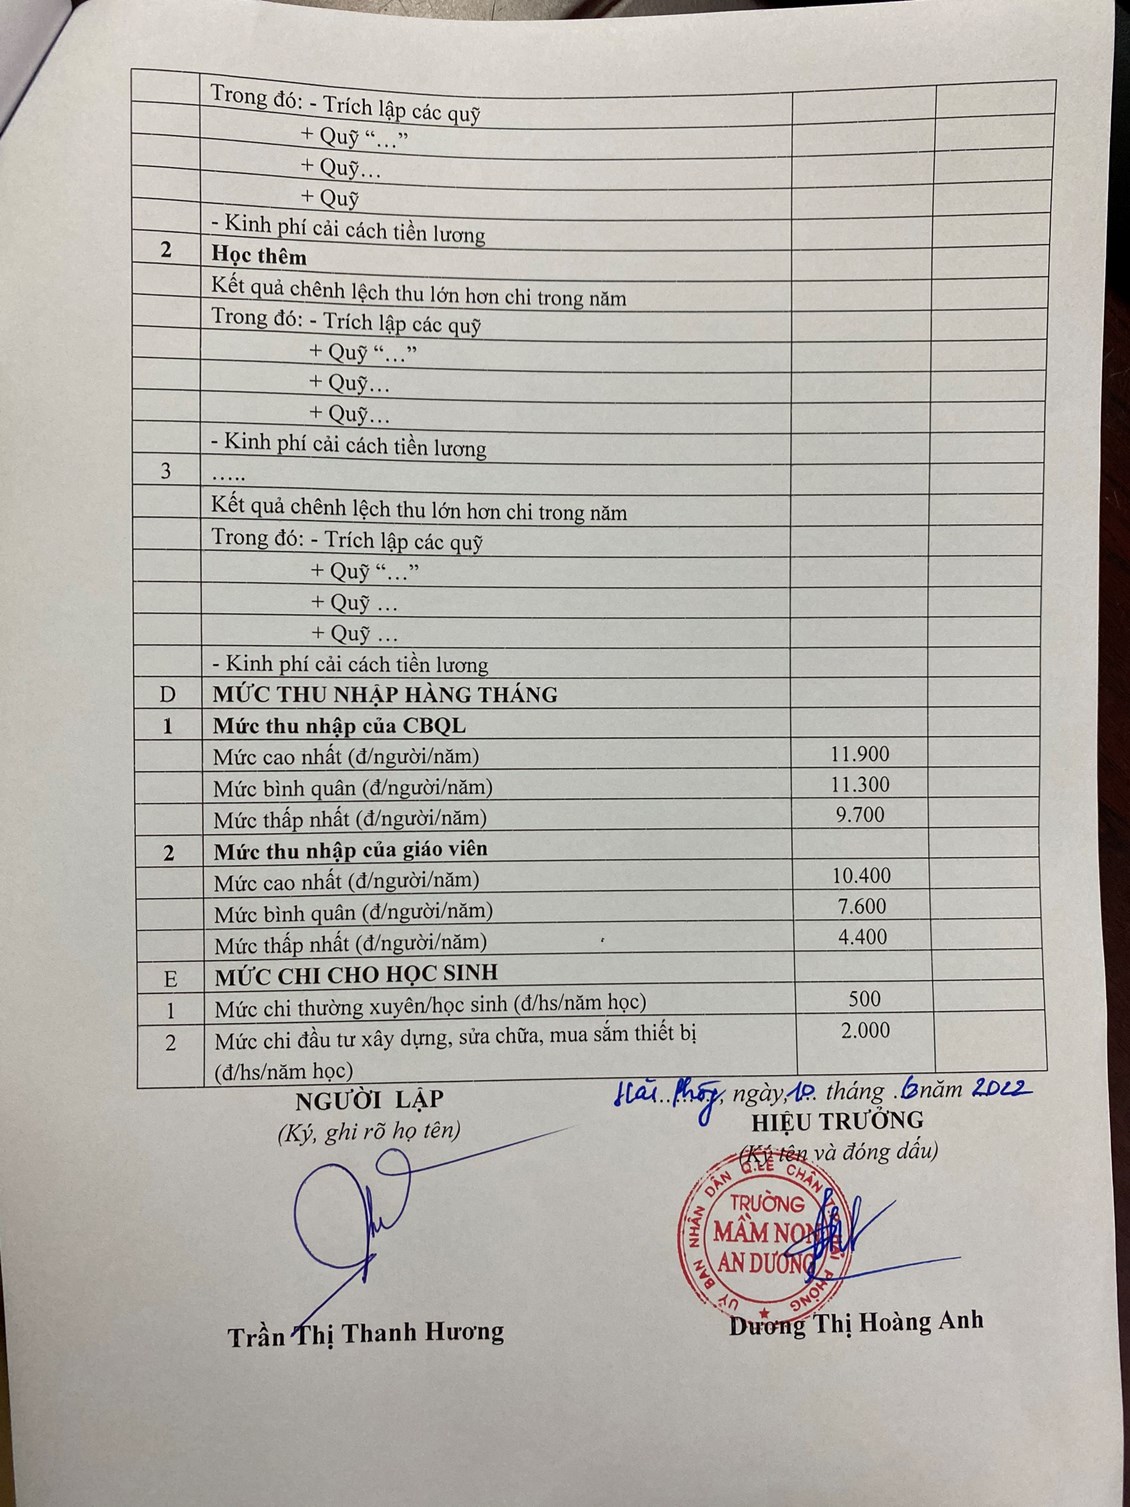 Trong đó: - Trích lập các quỹ
+ Quỹ “…”
+ Quỹ…
+ Quỹ
- Kinh phí cải cách tiền lương
2 Học thêm
Kết quả chênh lệch thu lớn hơn chi trong năm
Trong đó: - Trích lập các quỹ
+ Quỹ “…”
+ Quỹ…
+ Quỹ…
- Kinh phí cải cách tiền lương
3 …..
Kết quả chênh lệch thu lớn hơn chi trong năm
Trong đó: - Trích lập các quỹ
+ Quỹ “…”
+ Quỹ …
+ Quỹ …
- Kinh phí cải cách tiền lương
D MỨC THU NHẬP HÀNG THÁNG
1 Mức thu nhập của CBQL
Mức cao nhất (đ/người/năm) 11.900
Mức bình quân (đ/người/năm) 11.300
Mức thấp nhất (đ/người/năm) 9.700
2 Mức thu nhập của giáo viên
Mức cao nhất (đ/người/năm) 10.400
Mức bình quân (đ/người/năm) 7.600
Mức thấp nhất (đ/người/năm) 4.400
E MỨC CHI CHO HỌC SINH
1 Mức chi thường xuyên/học sinh (đ/hs/năm học) 500
2 Mức chi đầu tư xây dựng, sửa chữa, mua sắm thiết bị 2.000
(đ/hs/năm học)
Hải Phòng, ngày 10 tháng 6 năm 2022
NGƯỜI LẬP
HIỆU TRƯỞNG
(Ký, ghi rõ họ tên)
(Ký tên và đóng dấu)
ỦY BAN NHÂN DÂN Q.LÊ CHÂN T.P HẢI PHÒNG
TRƯỜNG
MẦM NON
AN DƯƠNG
Trần Thị Thanh Hương
Dương Thị Hoàng Anh